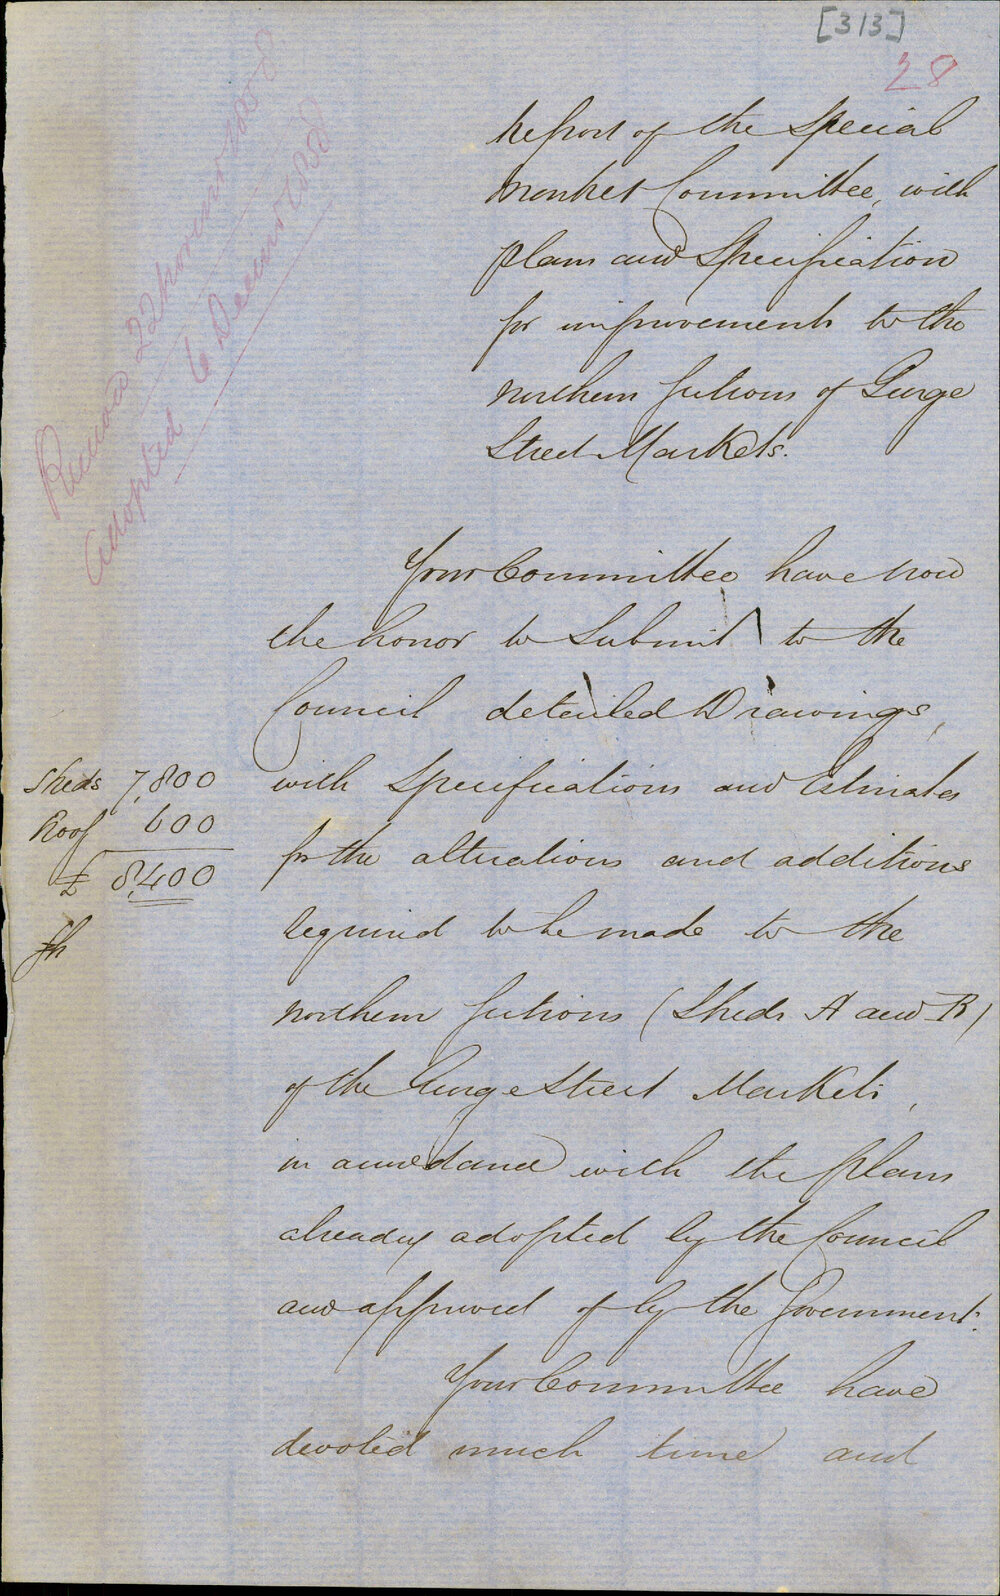 [313]
28
Received 22 November 1858
Adopted 6 December 1858
Report of the Special
Market Committee, with
plans and Specification
for improvements to the
northern portions of George
Street Markets.
Your Committee have now
the honor to Submit to the
Council detailed Drawings,
with Specifications and Estimates
for the alterations and additions
required to be made to the
northern portions (Sheds A and B)
of the George Street Markets,
in accordance with the plans
already adopted by the Council
and approved of by the Government.
Your Committee have
devoted much time and
Sheds 7,800
Roof 600
£ 8,400